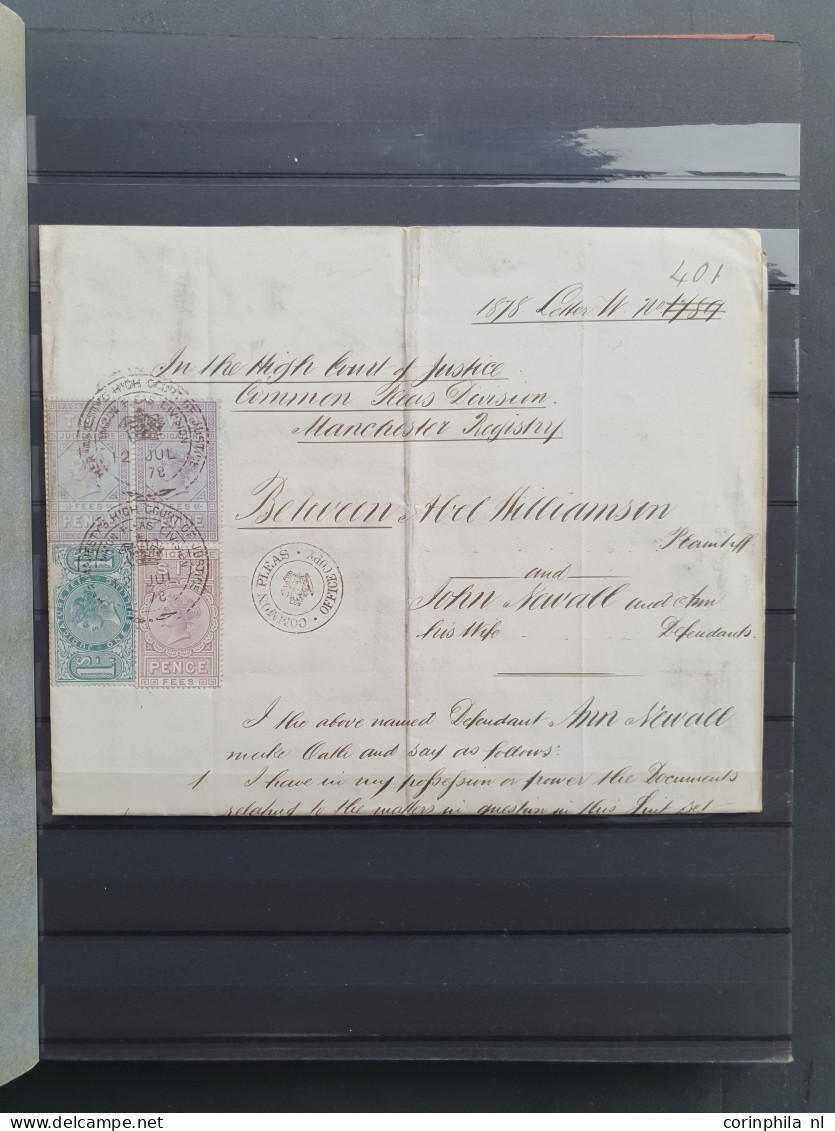 401
1878 Letter W. No 1789
In the High Court of Justice
Common Pleas Division
Manchester Registry
Between Abel Williamson
Plaintiff
and
John Newall and Ann
his Wife Defendants.
I the above named Defendant Ann Newall
make Oath and say as follows:
1 I have in my possession or power the Documents
relating to the matters in question in this Suit set
HIGH COURT OF JUSTICE
PLEAS DIVISION
12 JUL
78
FEES
PENCE
HIGH COURT OF JUSTICE
JUL
78
COMMON PLEAS · OFFICE COPY ·
1S
PENCE
FEES
www.corinphila.nl